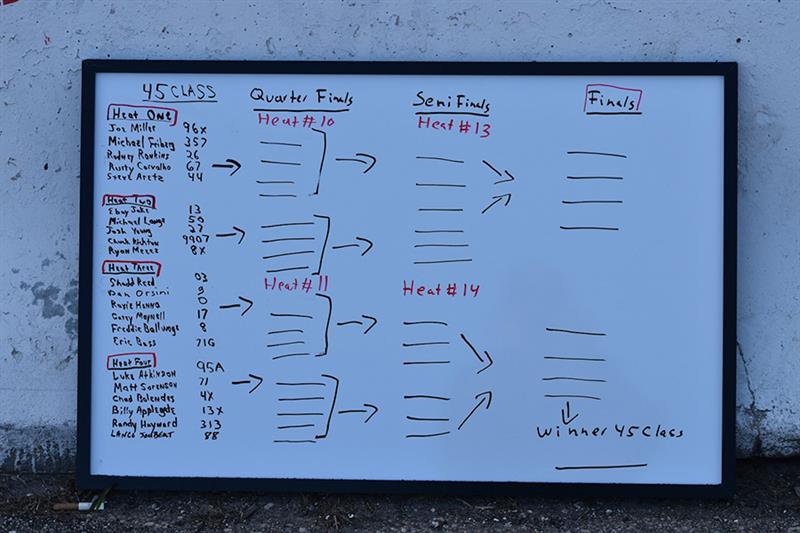 45 CLASS
Heat One
Joe Miller 96x
Michael Friberg 357
Rodney Rawkins 26
Rusty Carvalho 67
Steve Aretz 44
Heat Two
Ebay Jake 13
Michael Lange 50
Josh Young 27
Chuck 9907
Ryan 8x
Heat Three
Shadd Reed 03
Dan Orsini 9
Roxie Hanna 0
Corey Maynell 17
Freddie Ballunge 8
Eric Bass 71G
Heat Four
Luke 95A
Matt Sorenson 71
Chad Bolendes 4x
Billy Applegate 13x
Randy Hayward 313
88
Quarter Finals
Heat #10
Heat #11
Semi Finals
Heat #13
Heat #14
Finals
Winner 45 Class